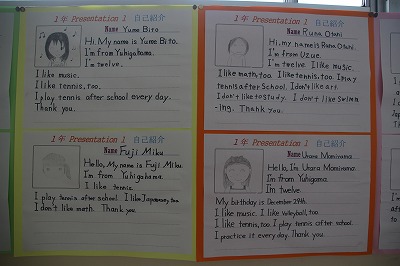 1年 Presentation 1 自己紹介
Name Yume Bito
Hi. My name is Yume Bito.
I'm from Yuhigahama.
I'm twelve.
I like music.
I like tennis, too.
I play tennis after school every day.
Thank you.
1年 Presentation 1 自己紹介
Name Runa Otani
Hi, my name is Runa Otani.
I'm from Uzue.
I'm twelve. I like music.
I like math, too. I like tennis, too. I play
tennis after school. I don't like art.
I don't like to study. I don't like swimm
-ing. Thank you.
1年 Presentation 1 自己紹介
Name Fuji Miku
Hello, My name is Fuji Miku.
I'm from Yuhigahama.
I like tennis.
I play tennis after school. I like Japanese, too.
I don't like math. Thank you.
1年 Presentation 1 自己紹介
Name Urara Momiyama
Hello, I'm Urara Momiyama.
I'm from Yuhigama.
I'm twelve.
My birthday is December 29th.
I like music. I like volleyball, too.
I like tennis, too. I play tennis after school.
I practice it every day. Thank you.